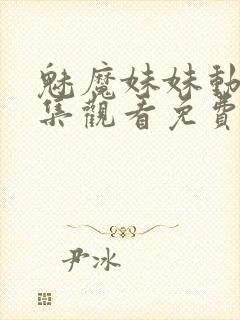 魅魔妹妹動
集觀看免費
尹冰